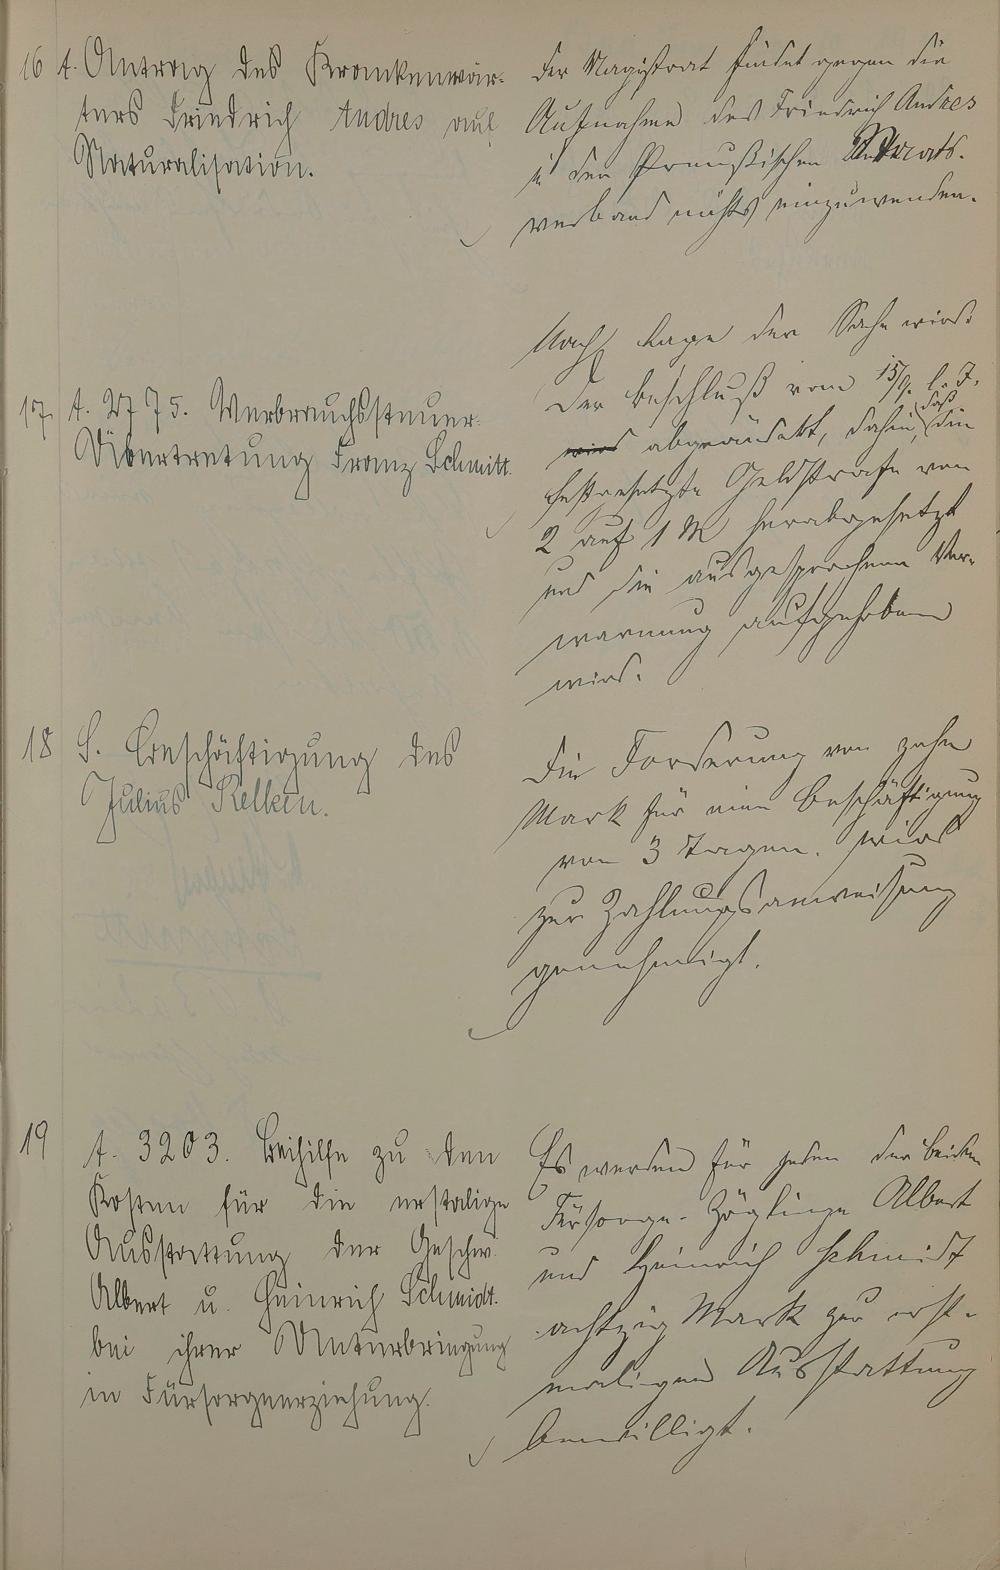 16 A. Antrag des Krankenwär-
ters Friedrich Andres auf
Naturalisation.
Der Magistrat findet gegen die
Aufnahme des Friedrich Andres
in den Preußischen Staats-
verband nichts einzuwenden.
17. A. 2775. Verbrauchssteuer-
Übertretung Franz Schmitt.
Nach Lage der Sache wird
der Beschluß vom 15/9. l. J.
wird abgeändert, dahin, daß die
festgesetzte Geldstrafe von
2 auf 1 M herabgesetzt
und die ausgesprochene Ver-
warnung aufgehoben
wird.
18 S. Beschäftigung des
Julius Kelken.
Die Forderung von zehn
Mark für eine Beschäftigung
von 3 Tagen. wird
zur Zahlungsanweisung
genehmigt.
19 A. 3203. Beihilfe zu den
Kosten für die erstalige
Ausstattung der Geschw.
Albert u. Heinrich Schmidt.
bei ihrer Unterbringung
in Fürsorgeerziehung.
Es werden für jeden der beiden
Fürsorge-Zöglinge Albert
und Heinrich Schmidt
achtzig Mark zur erst-
maligen Ausstattung
bewilligt.